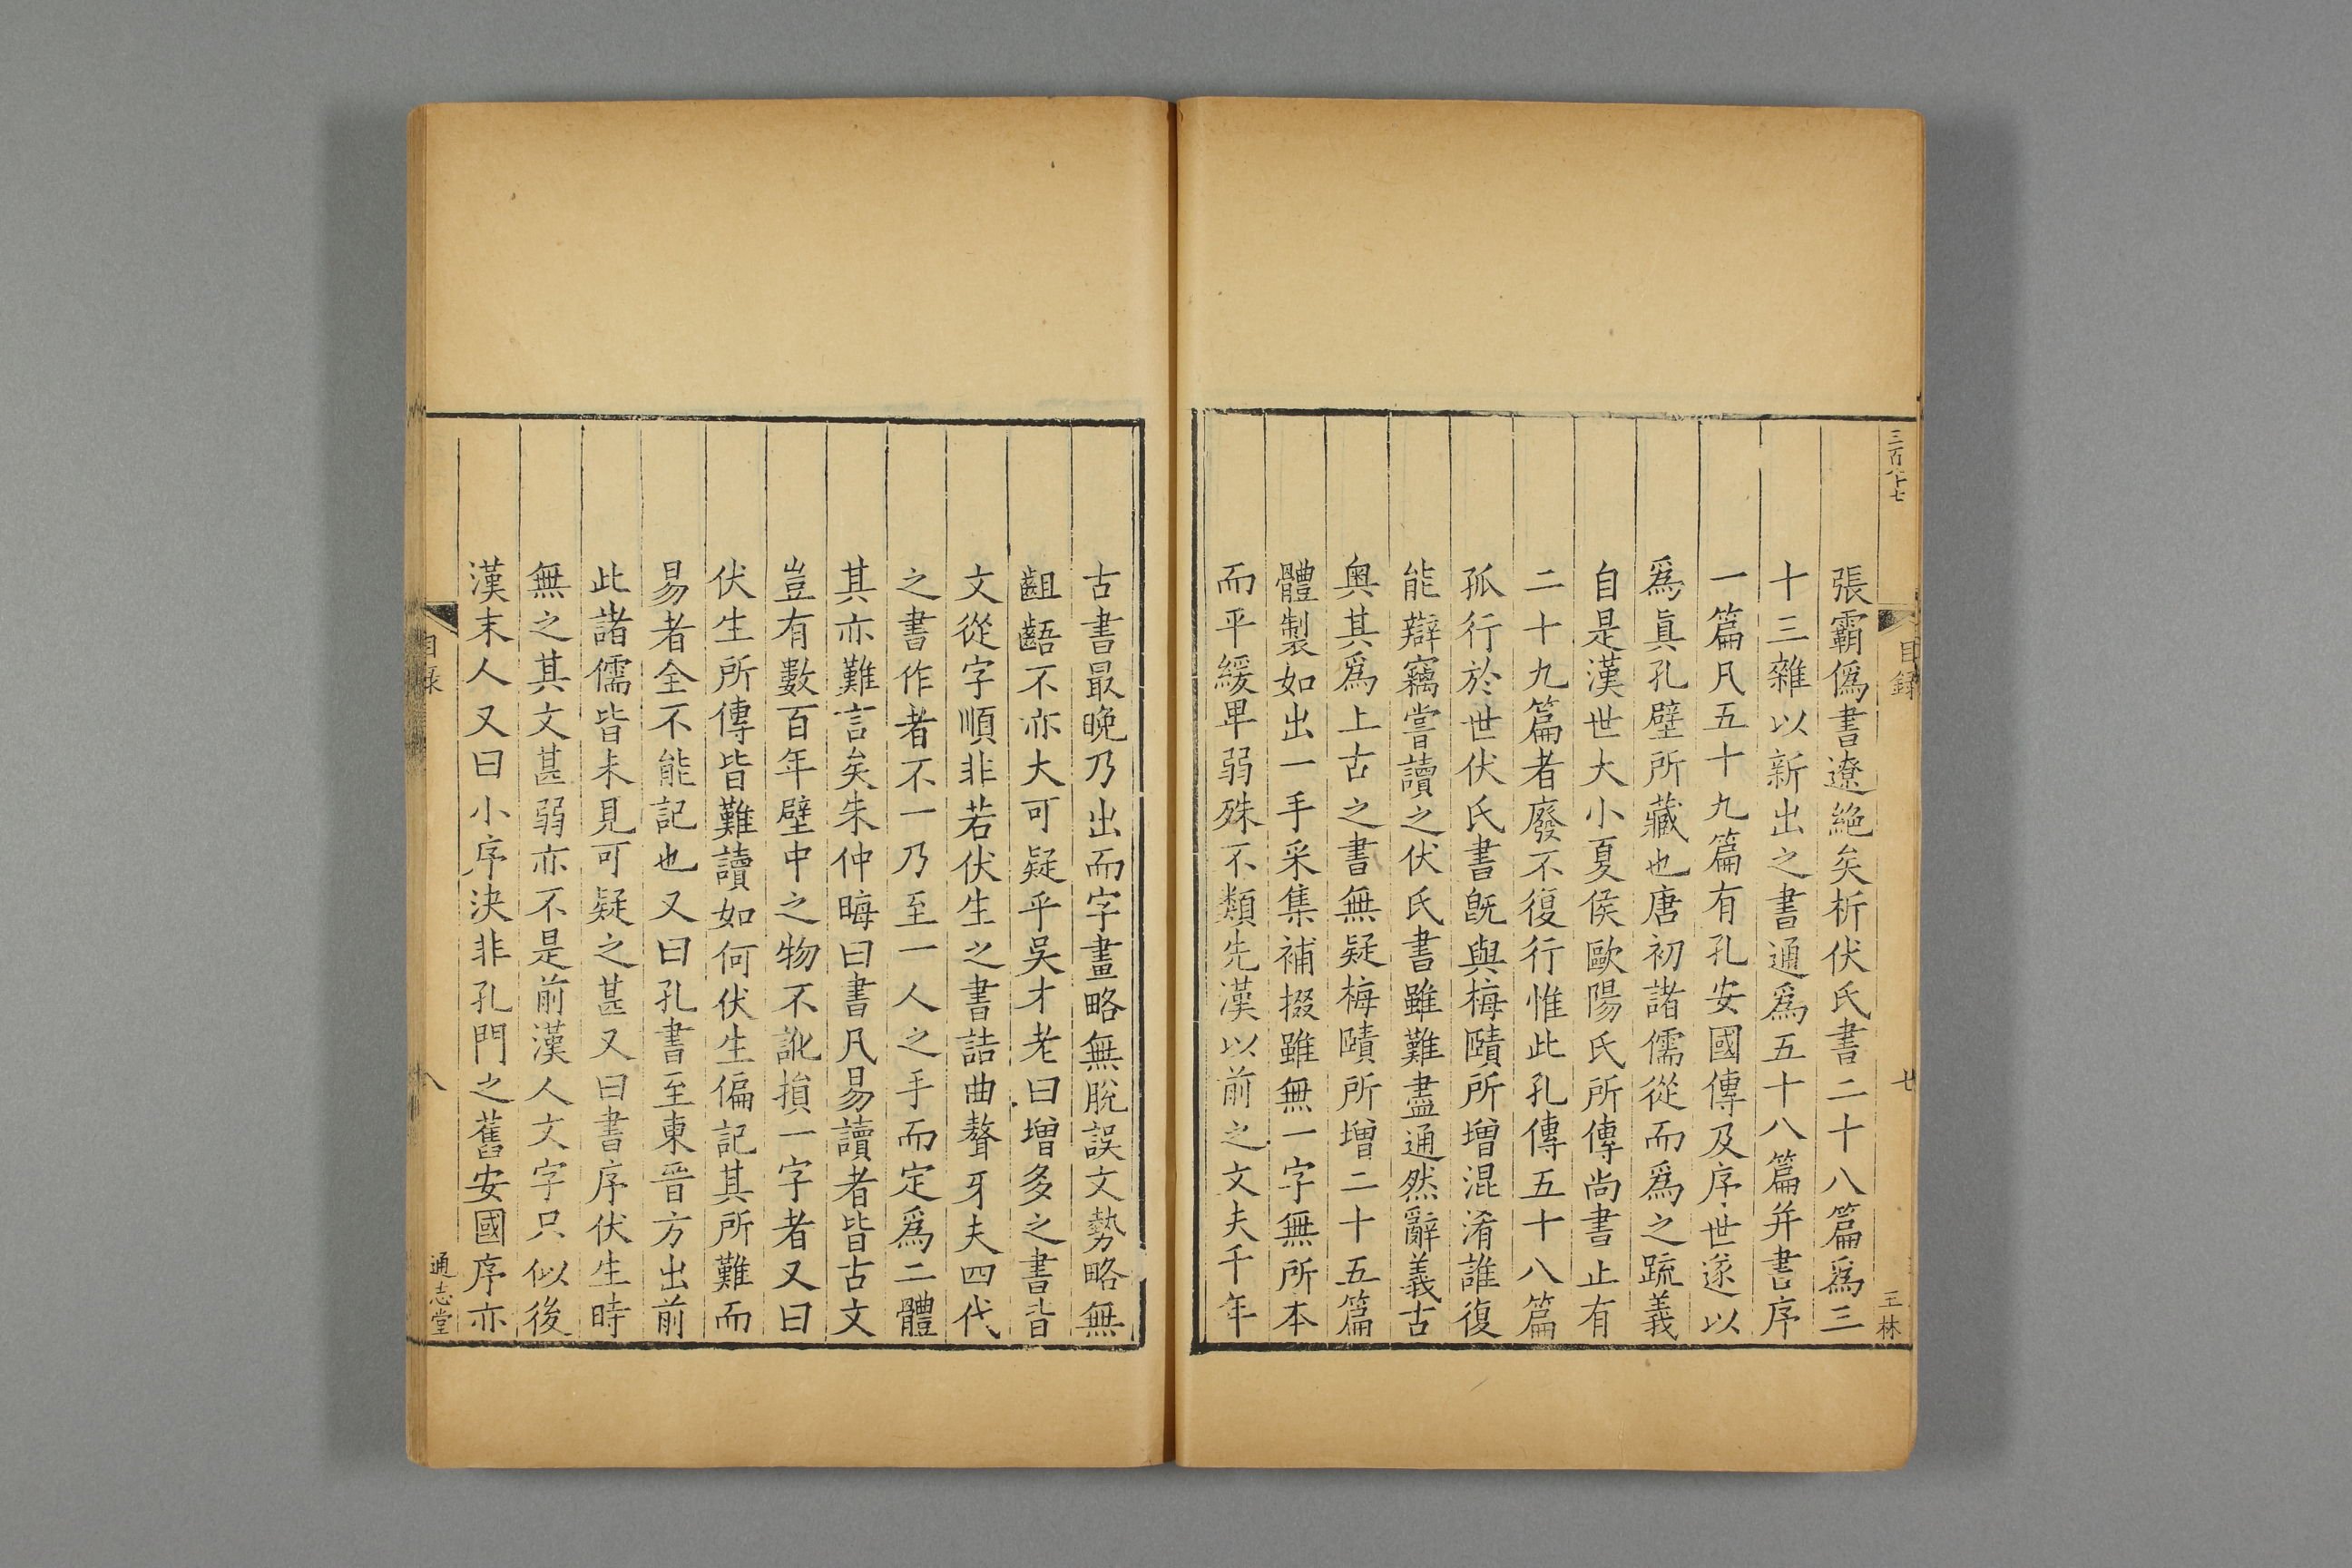 三百八十七
目錄
七
王林
張霸僞書遼絕矣析伏氏書二十八篇爲三
十三雜以新出之書通爲五十八篇并書序
一篇凡五十九篇有孔安國傳及序世遂以
爲眞孔壁所藏也唐初諸儒從而爲之疏義
自是漢世大小夏侯歐陽氏所傳尚書止有
二十九篇者廢不復行惟此孔傳五十八篇
孤行於世伏氏書旣與梅賾所增混淆誰復
能辯竊嘗讀之伏氏書雖難盡通然辭義古
奥其爲上古之書無疑梅賾所增二十五篇
體製如出一手采集補掇雖無一字無所本
而平緩卑弱殊不類先漢以前之文夫千年
古書最晚乃出而字畫略無脫誤文勢略無
齟齬不亦大可疑乎吳才老曰增多之書皆
文從字順非若伏生之書詰曲聱牙夫四代
之書作者不一乃至一人之手而定爲二體
其亦難言矣朱仲晦曰書凡易讀者皆古文
豈有數百年壁中之物不訛損一字者又曰
伏生所傳皆難讀如何伏生偏記其所難而
易者全不能記也又曰孔書至東晉方出前
此諸儒皆未見可疑之甚又曰書序伏生時
無之其文甚弱亦不是前漢人文字只似後
漢末人又曰小序決非孔門之舊安國序亦
目錄
八
通志堂